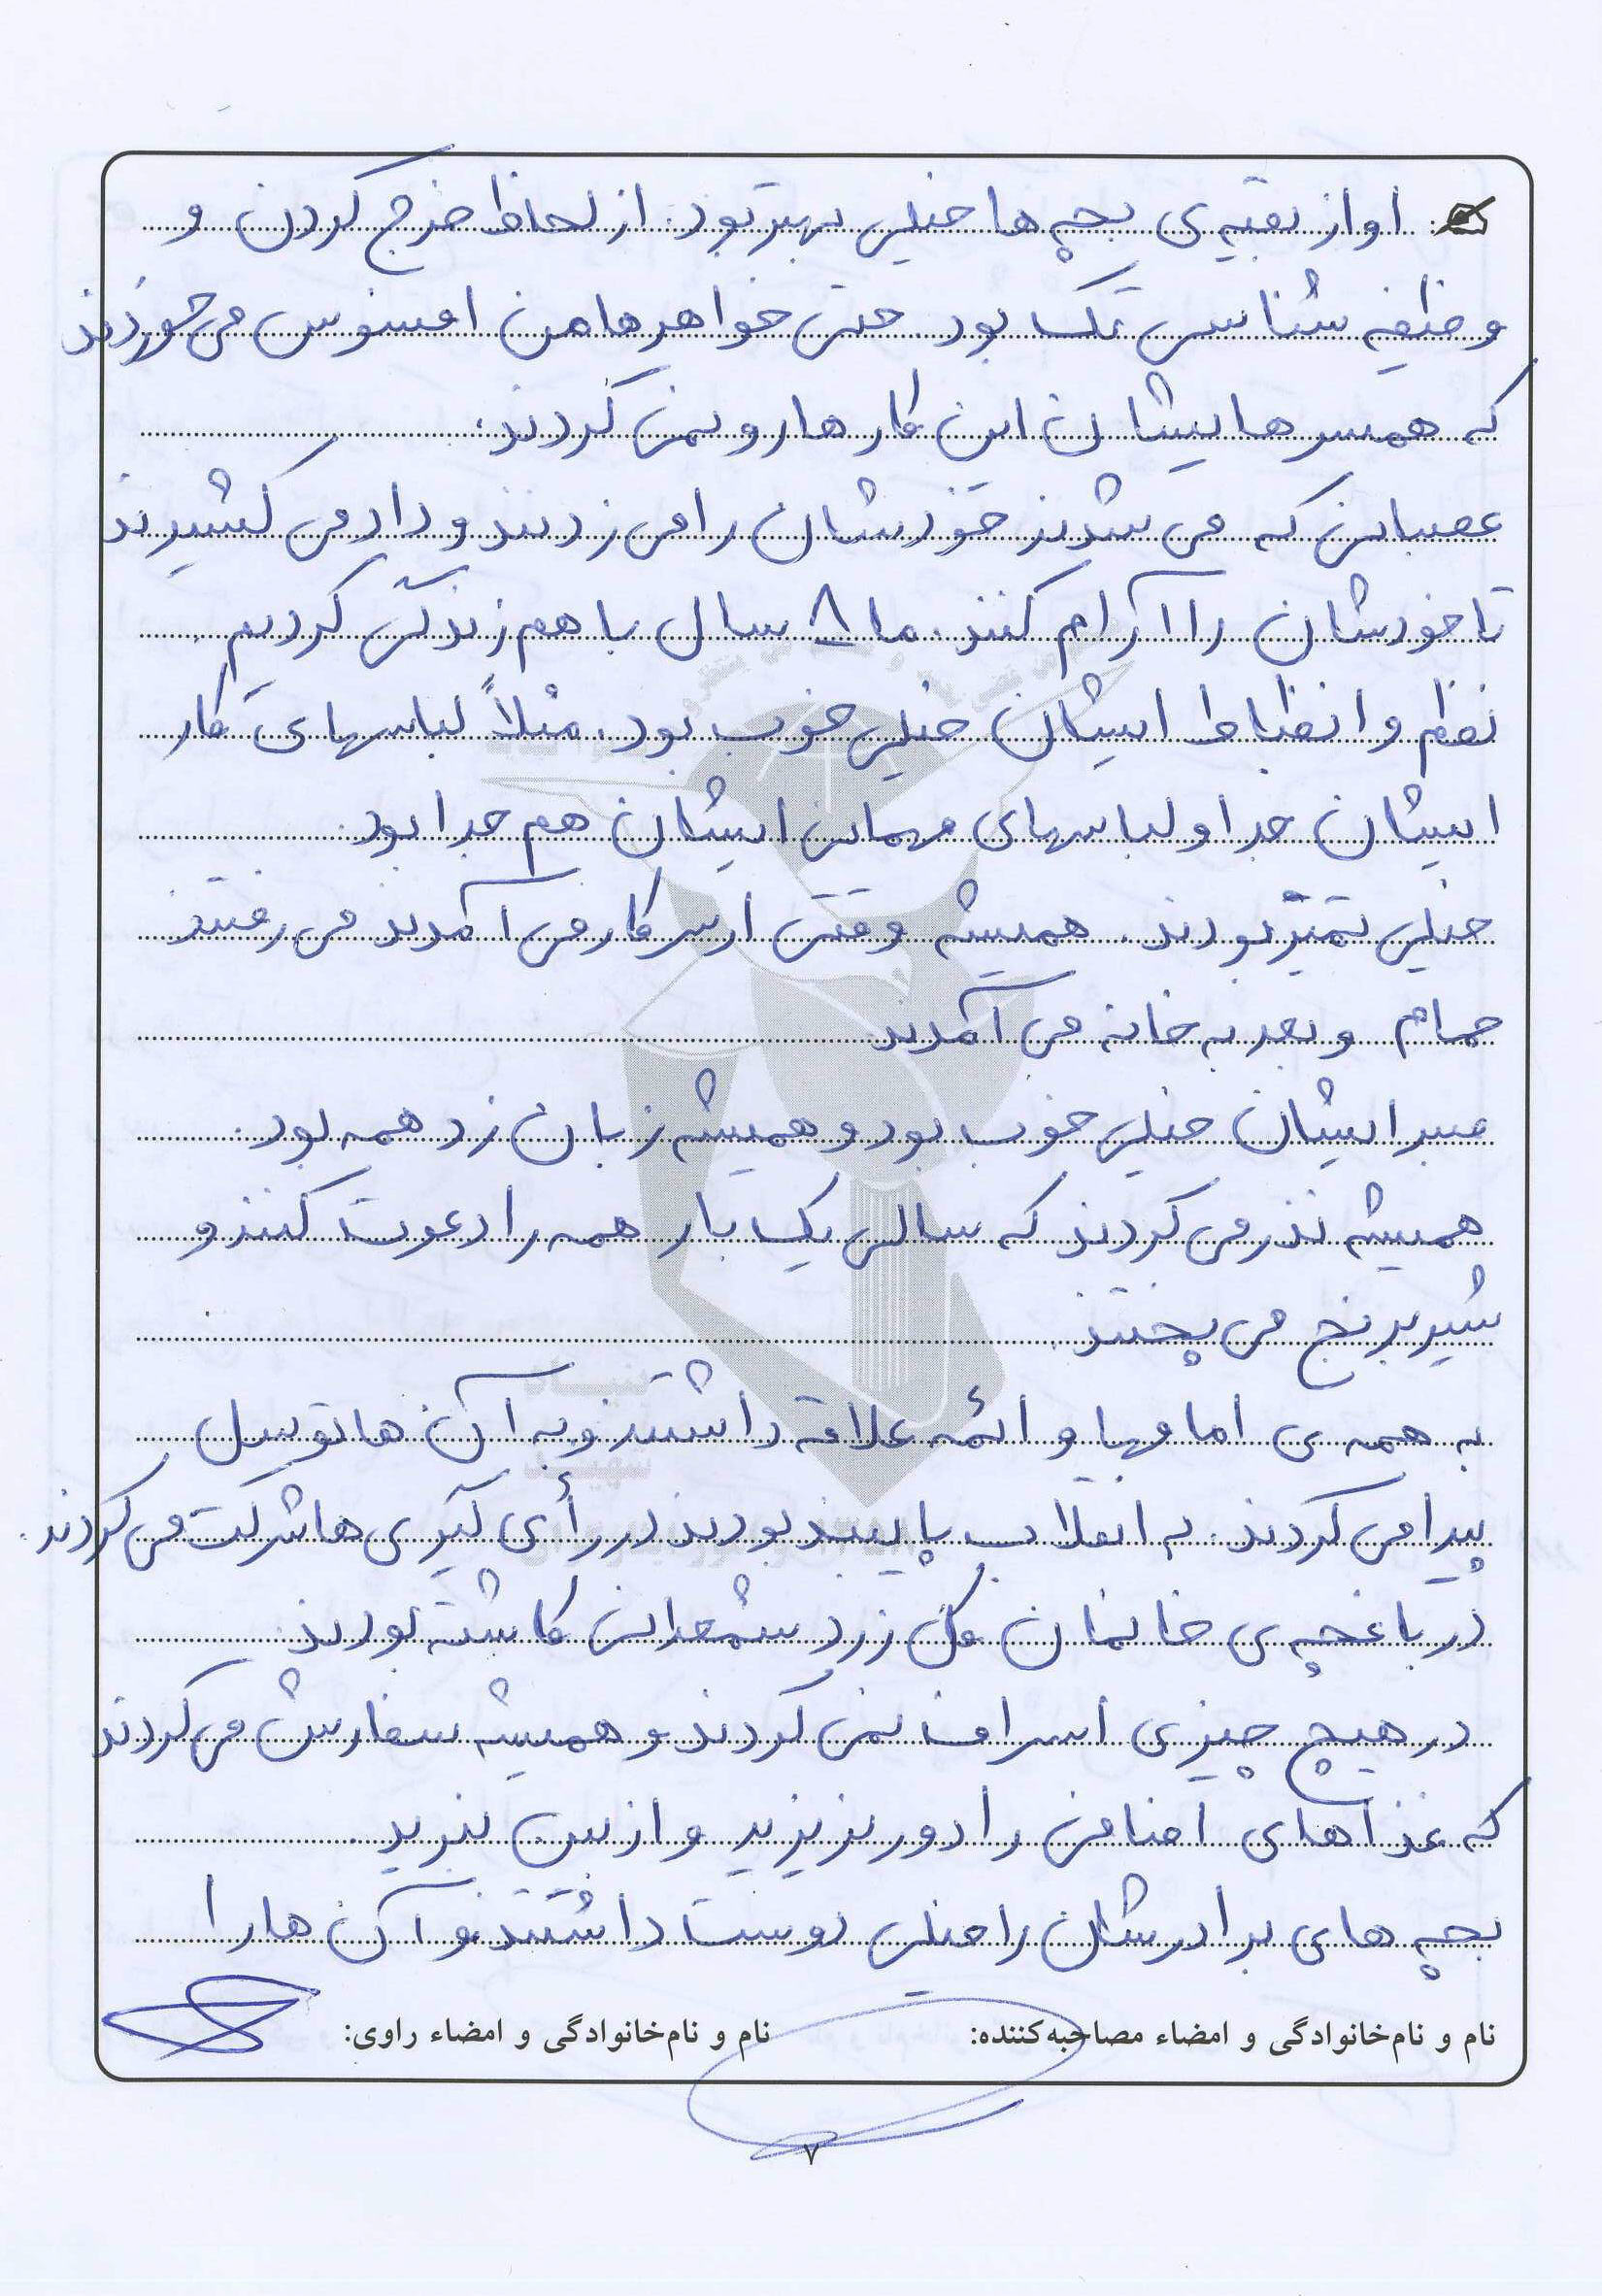 او از بقیه‌ی بچه‌ها خیلی بهتر بود. از لحاظ خرج کردن و
وظیفه شناسی تک بود. حتی خواهرهامن افسوس می‌خوردند
که همسرهایشان این کارها رو نمی‌کردند.
عصبانی که می‌شدند خودشان را می‌زدند و داد می‌کشیدند
تا خودشان را آرام کنند. ما ۸ سال با هم زندگی کردیم.
نظم و انظباط ایشان خیلی خوب بود. مثلاً لباسهای کار
ایشان جدا و لباسهای مهمانی ایشان هم جدا بود.
خیلی تمیز بودند. همیشه وقتی از سر کار می‌آمدند می‌رفتند
حمام و بعد به خانه می‌آمدند
صبر ایشان خیلی خوب بود و همیشه زبان زد همه بود.
همیشه نذر می‌کردند که سالی یک بار همه را دعوت کنند و
شیر برنج می‌پختند.
به همه‌ی امامها و ائمه علاقه داشتند و به آن‌ها توسل
پیدا می‌کردند. به انقلاب پایبند بودند در رأی گیری‌ها شرکت می‌کردند.
در باغچه‌ی خانمان گل زرد شمعدانی کاشته بودند.
در هیچ چیزی اسراف نمی‌کردند و همیشه سفارش می‌کردند
که غذاهای اضافی را دور نریزید و از بین نبرید.
بچه‌های برادرشان را خیلی دوست داشتند و آن‌ها را
نام و نام‌خانوادگی و امضاء مصاحبه‌کننده: نام و نام‌خانوادگی و امضاء راوی:
۷